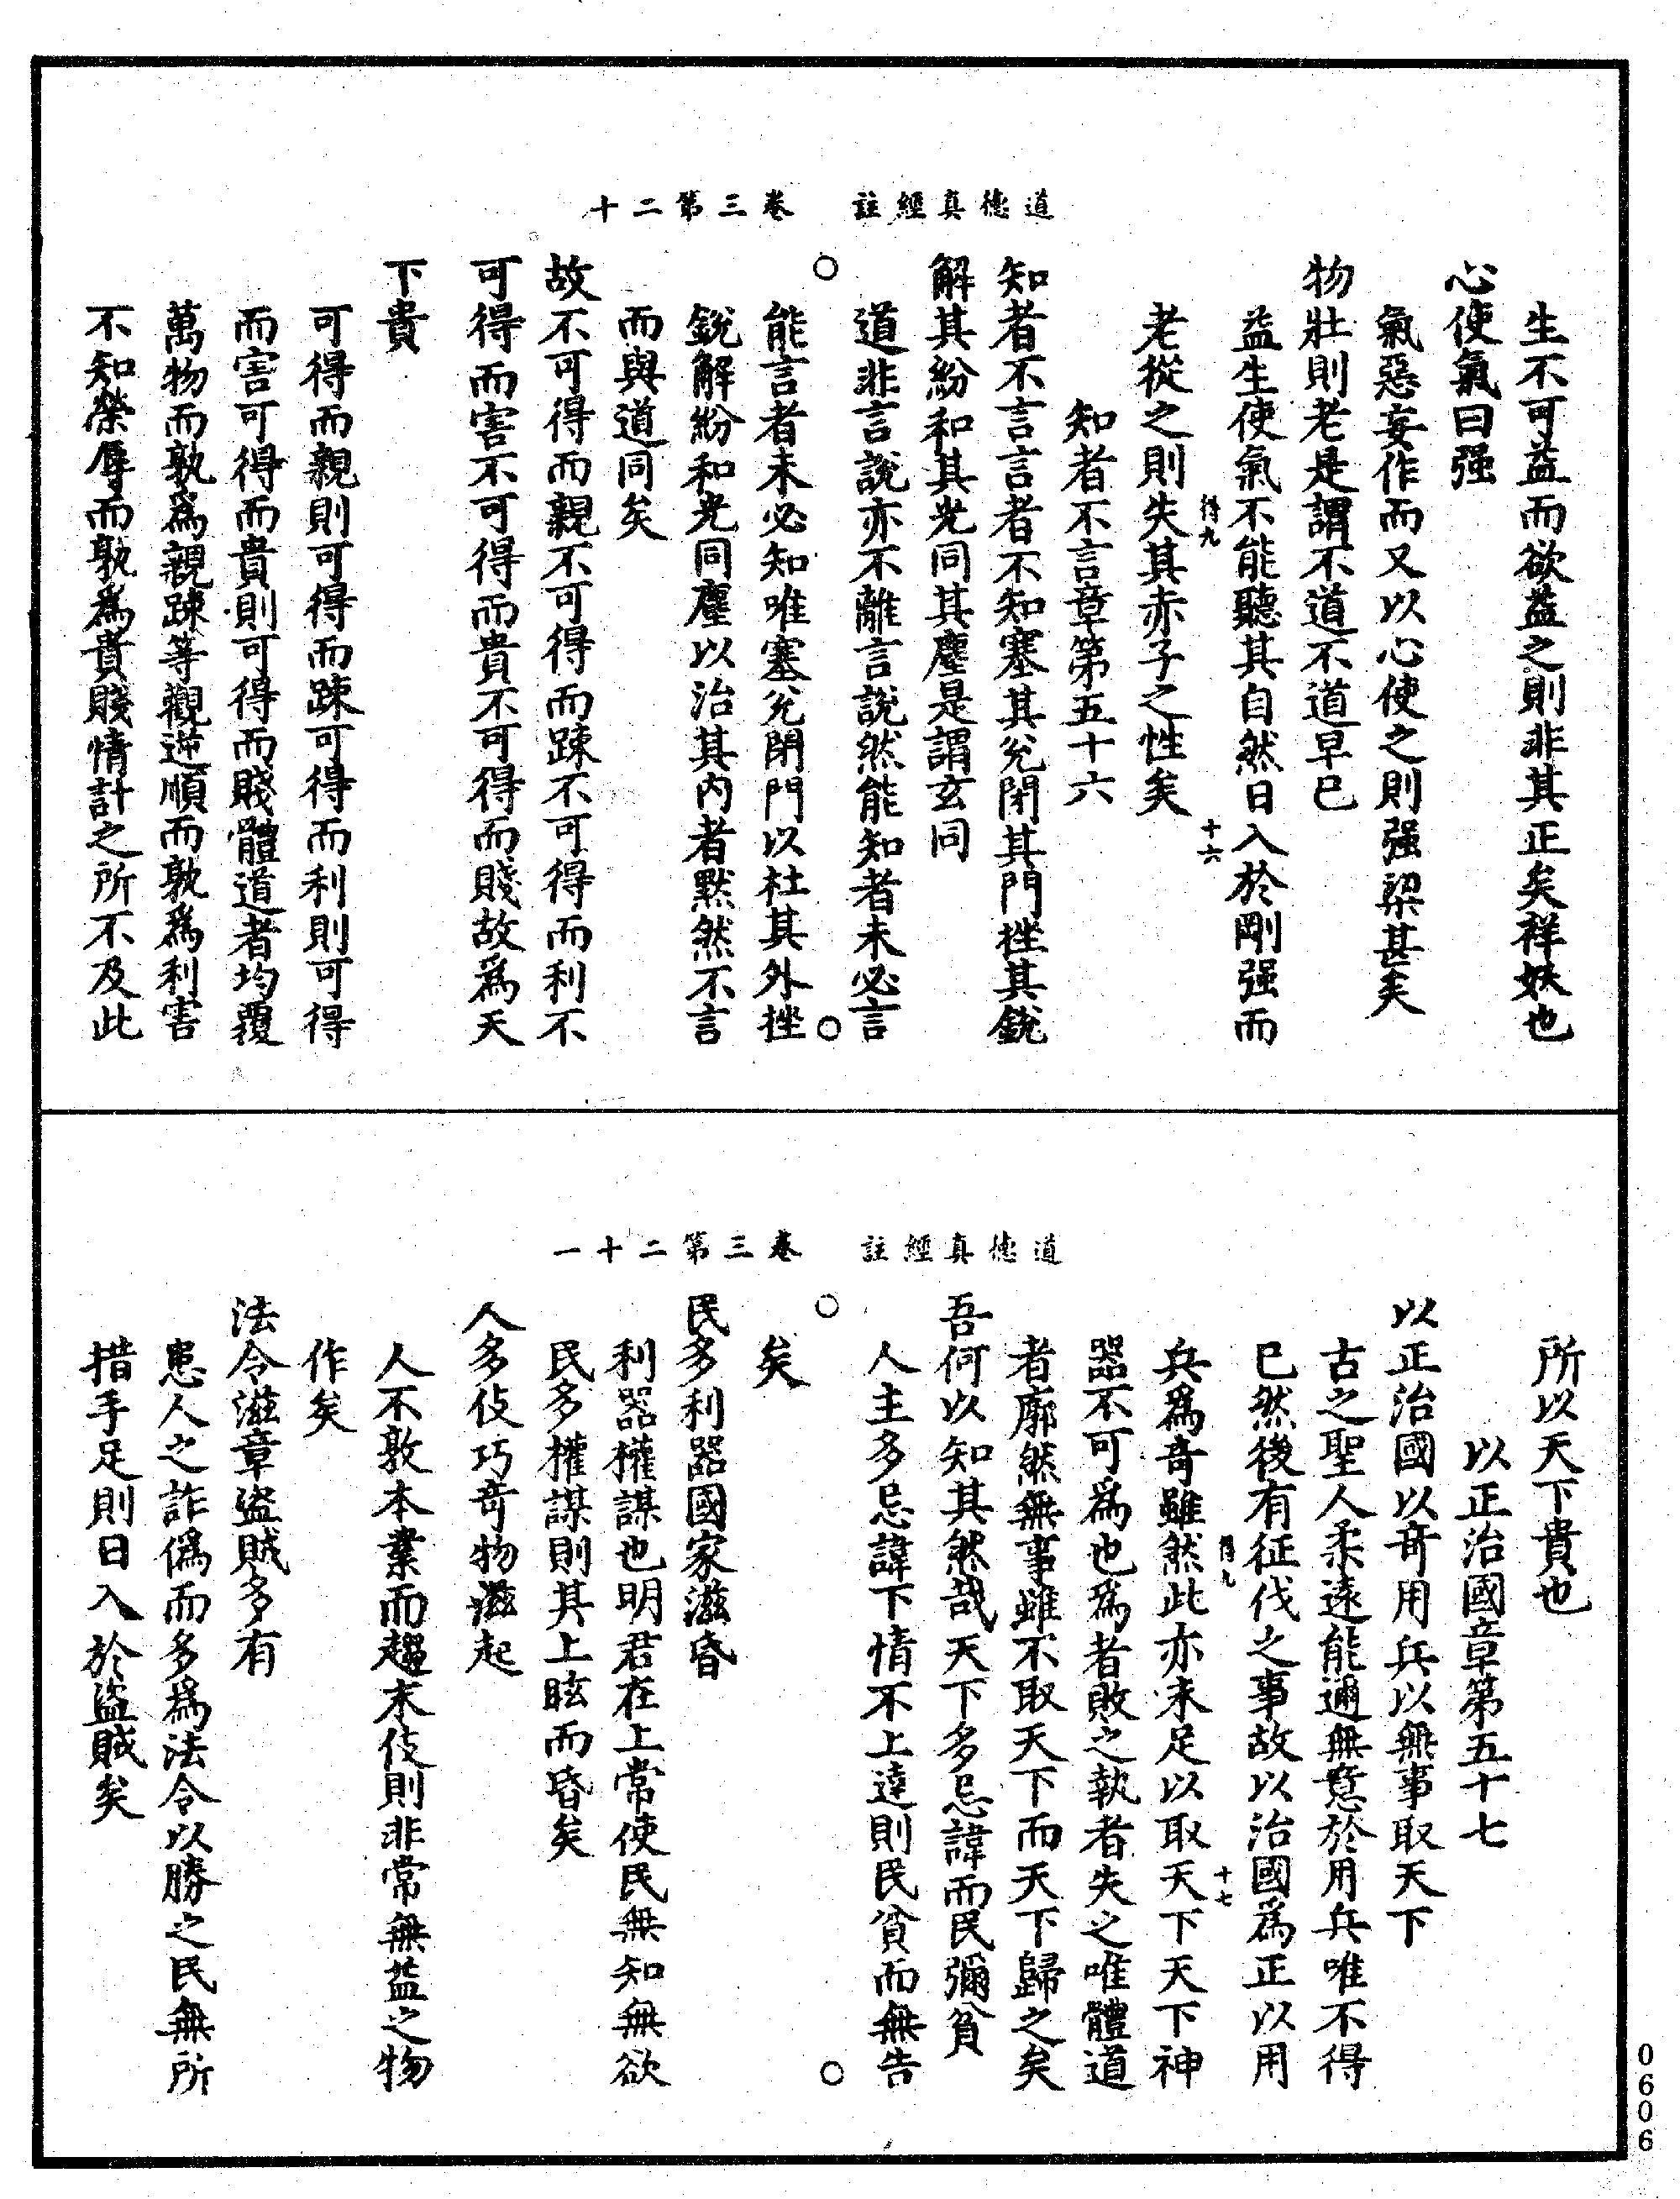 道德真經註　卷三第二十
生不可益而欲益之則非其正矣祥妖也
心使氣曰强
氣惡妄作而又以心使之則强梁甚矣
物壯則老是謂不道不道早已
益生使氣不能聽其自然日入於剛强而
得九　十六
老從之則失其赤子之性矣
知者不言章第五十六
知者不言言者不知塞其兊閉其門挫其銳
解其紛和其光同其塵是謂玄同
道非言說亦不離言說然能知者未必言
能言者未必知唯塞兊閉門以杜其外挫
銳解紛和光同塵以治其內者默然不言
而與道同矣
故不可得而親不可得而踈不可得而利不
可得而害不可得而貴不可得而賤故爲天
下貴
可得而親則可得而踈可得而利則可得
而害可得而貴則可得而賤體道者均覆
萬物而孰爲親踈等觀逆順而孰爲利害
不知榮辱而孰爲貴賤情計之所不及此
道德真經註　卷三第二十一
所以天下貴也
以正治國章第五十七
以正治國以竒用兵以無事取天下
古之聖人柔遠能邇無意於用兵唯不得
已然後有征伐之事故以治國爲正以用
得九　十七
兵爲竒雖然此亦未足以取天下天下神
器不可爲也爲者敗之執者失之唯體道
者廓然無事雖不取天下而天下歸之矣
吾何以知其然哉天下多忌諱而民彌貧
人主多忌諱下情不上達則民貧而無告
矣
民多利器國家滋昏
利器權謀也明君在上常使民無知無欲
民多權謀則其上眩而昏矣
人多伎巧竒物滋起
人不敦本業而趨末伎則非常無益之物
作矣
法令滋章盜賊多有
患人之詐僞而多爲法令以勝之民無所
措手足則日入於盜賊矣
0606